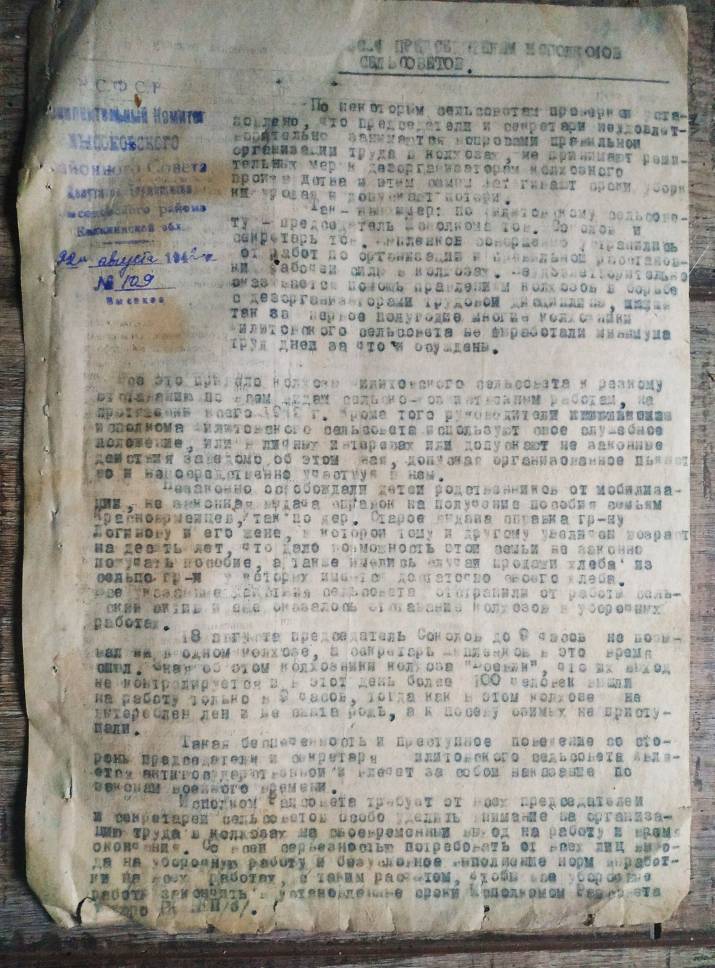 ВСЕМ ПРЕДСЕДАТЕЛЯМ ИСПОЛКОМОВ
СЕЛЬСОВЕТОВ.
РСФСР
Исполнительный Комитет
ВЫСОКОВСКОГО
Районного Совета
Депутатов Трудящихся
Высоковского района
Калининской обл.
22 августа 194
№ 109
Высокое
По некоторым сельсоветам проверкой уста-
новлено, что председатели и секретари неудовлет-
ворительно занимаются вопросами правильной
организации труда в колхозах, не принимают реши-
тельных мер к дезорганизаторам колхозного
производства и этим самым затягивают сроки уборки
урожая и допускают потери.
Так-например: по сельсове-
ту - председатель исполкома тов. Соколов и
секретарь тов. совершенно устранились
от работ по организации и правильной расстанов-
ки рабочей силы в колхозах. Неудовлетворительно
оказывается помощь правлениям колхозов в борьбе
с дезорганизаторами трудовой дисциплины,
так за первое полугодие многие колхозники
сельсовета не выработали минимума
труд дней за что и осуждены.
Все это привело колхозы сельсовета к резкому
отставанию по всем видам сельско-хозяйственным работам, на
протяжении всего г. Кроме того руководители
исполкома сельсовета используют свое служебное
положение, или в личных интересах или допускают не законные
действия заведомо об этом зная, допуская организованное пьянст
во и непосредственно участвуя в нем.
Незаконно освобождали детей родственников от мобилиза-
ции, не законная выдача справок на получение пособия семьям
Красноармейцев, так по дер. Старое выдана справка гр-ну
Логинову и его жене, в которой тому и другому увеличен возраст
на десять лет, что дало возможность этой семьи не законно
получать пособие, а также имелись случаи продажи хлеба из
сельпо гр-н у которых имеется достаточно своего хлеба.
Все указанные действия сельсовета отстранили от работы сель-
ский актив и оказалось отставание колхозов в уборочных
работах.
18 августа председатель Соколов до 9 часов не побы-
вал ни в одном колхозе, а секретарь в это время
Зная об этом колхозники колхоза что их выход
не контролируется в этот день более 100 человек вышли
на работу только в 9 часов, тогда как в этом колхозе не
лен и не сжата рожь, а к посеву озимых не присту-
пали.
Такая беспечность и преступное поведение со сто-
роны председателя и секретаря сельсовета явля-
ется антигосударственной и влечет за собой наказание по
законам военного времени.
Исполком Райсовета требует от всех председателей
и секретарей сельсоветов особо уделить внимание на организа-
цию труда в колхозах на своевременный выход на работу и время
окончания. Со всей серьезностью потребовать от всех лиц выхо-
да на уборочную работу и безусловное выполнение норм выработ-
ки на всех работах, с таким расчетом, чтобы все уборочные
работы закончить в установленные сроки Исполкомом Райсовета